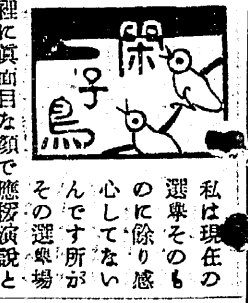 閑子鳥
私は現在の
選擧そのも
のに餘り感
心してない
んです所が
その選擧場
裡に眞面目な顔で應援演説と